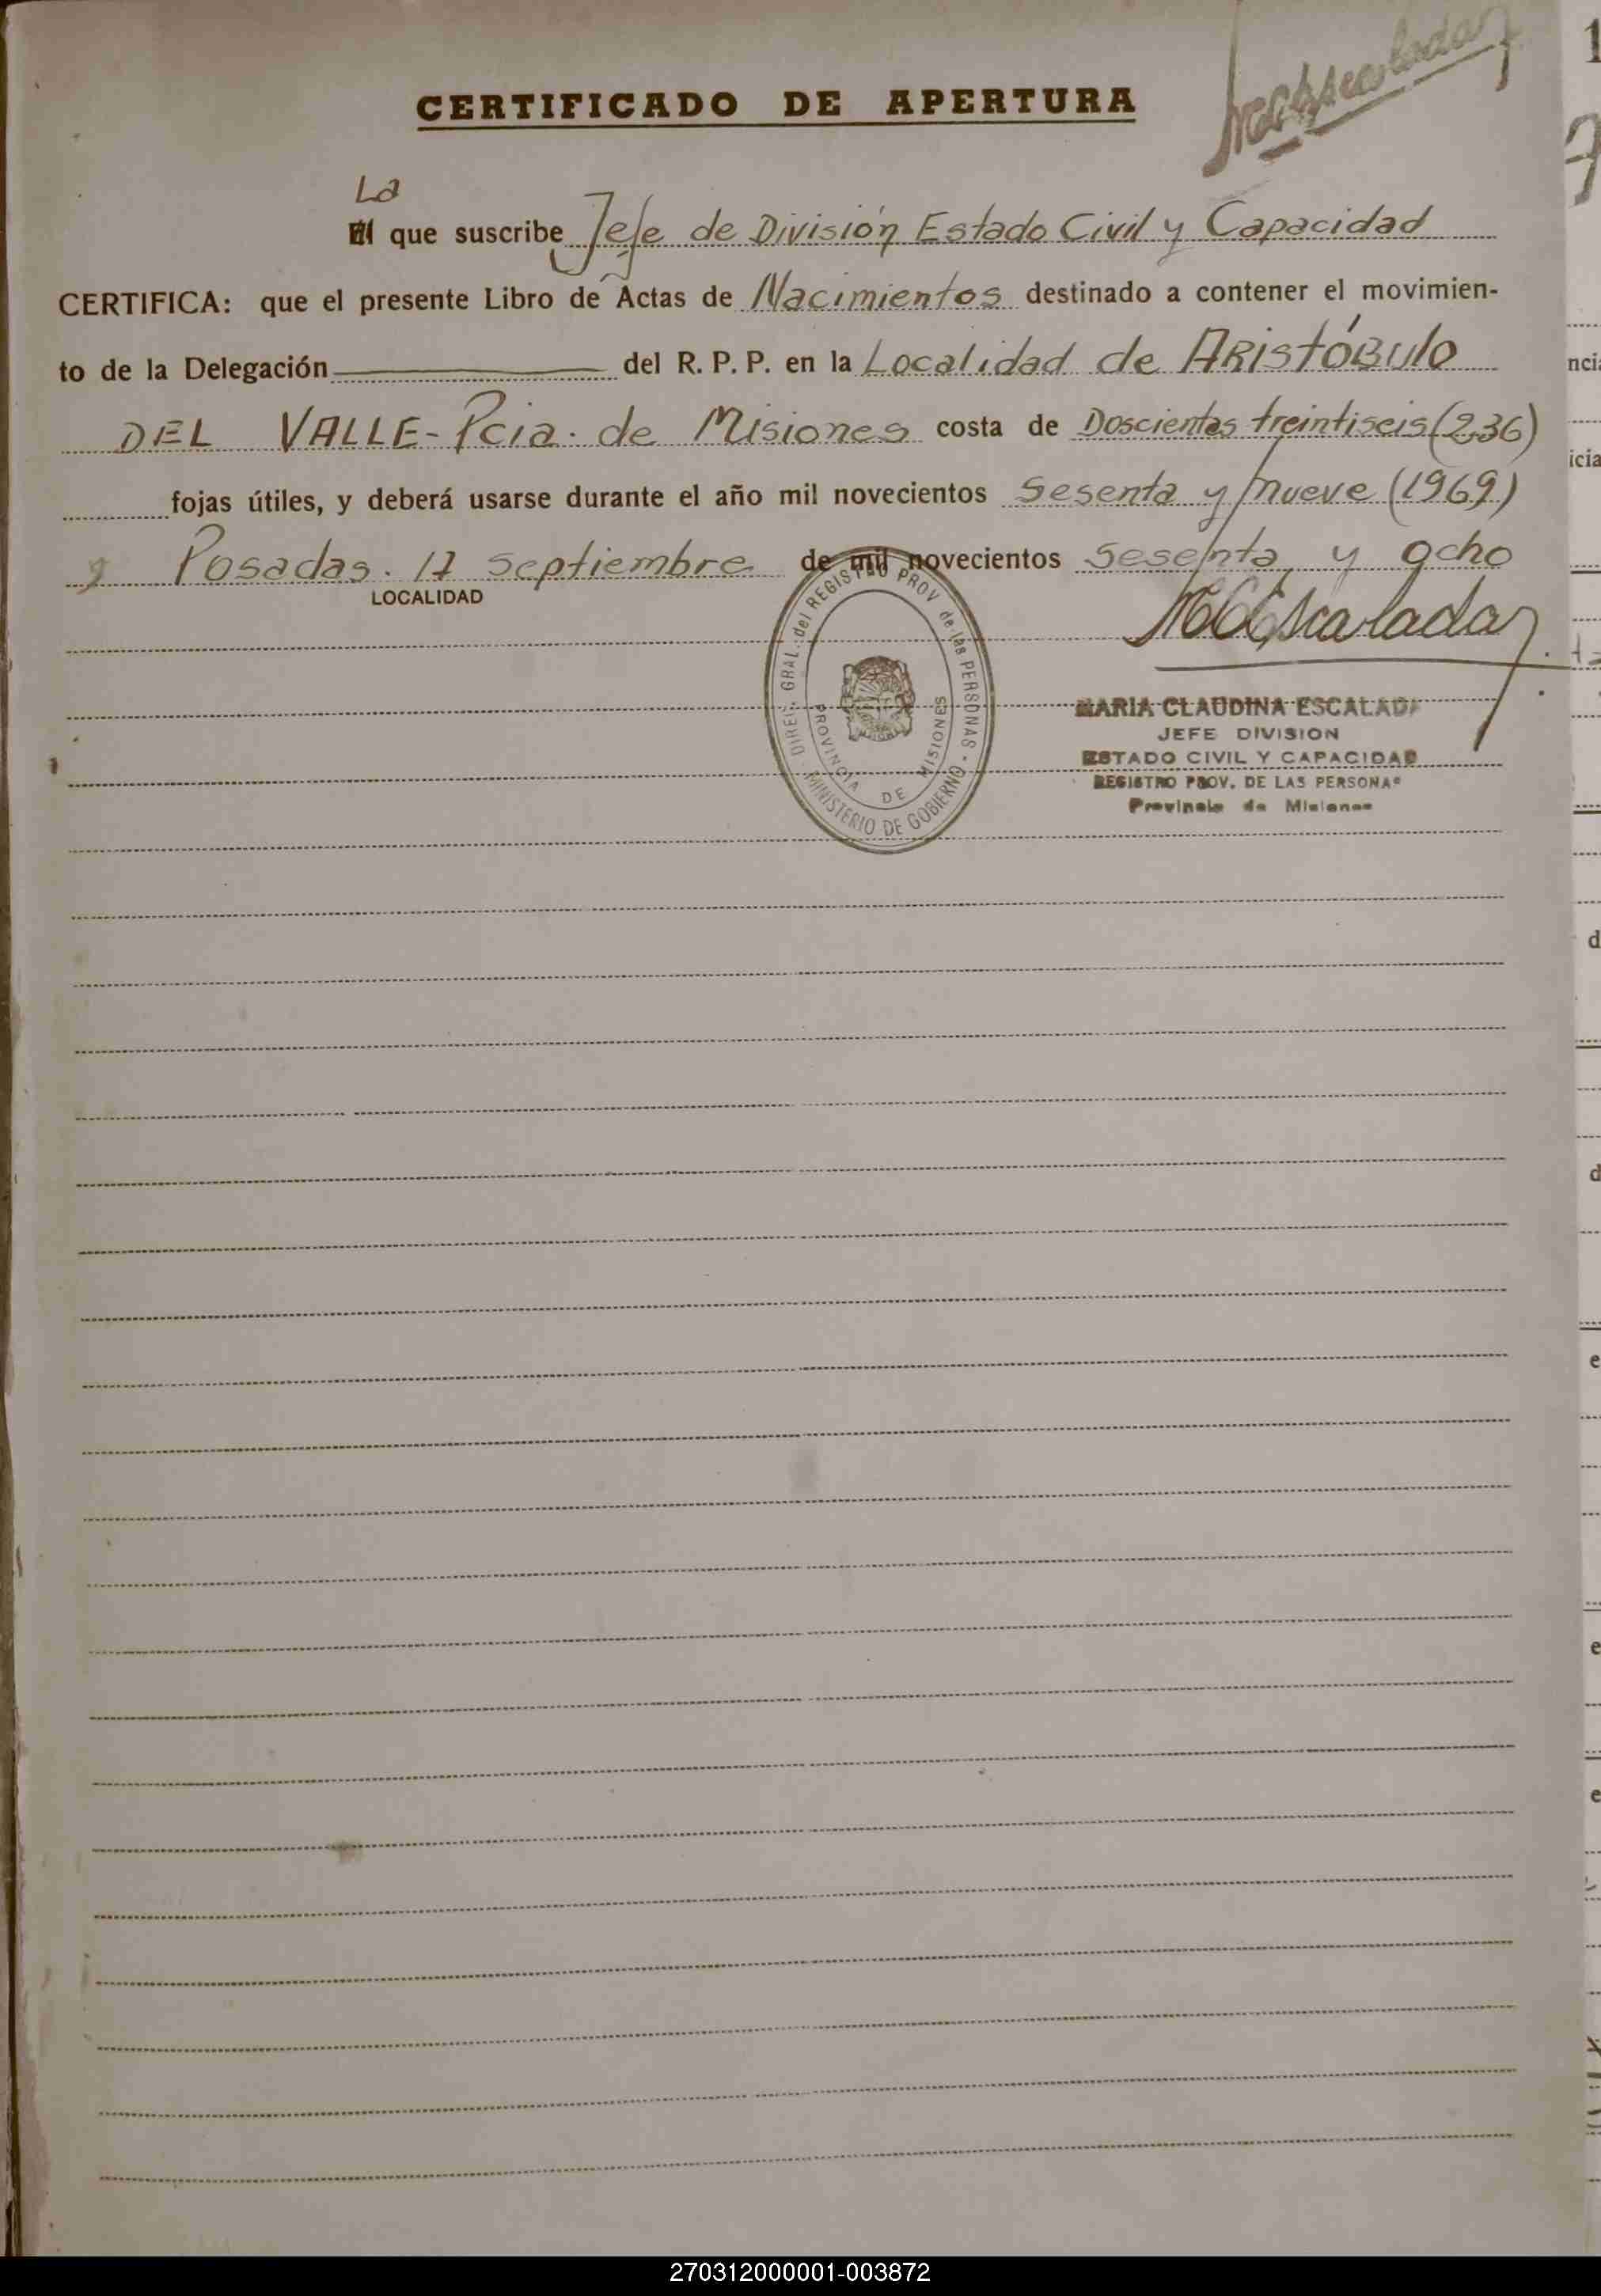 CERTIFICADO DE APERTURA
La
El que suscribe Jefe de División Estado Civil y Capacidad
CERTIFICA: que el presente Libro de Actas de Nacimientos destinado a contener el movimien-
to de la Delegación del R. P. P. en la Localidad de ARISTÓBULO
DEL VALLE- Pcia. de Misiones costa de Doscientos treintiseis (236)
fojas útiles, y deberá usarse durante el año mil novecientos Sesenta y nueve (1969)
Posadas. 17 septiembre de mil novecientos sesenta y ocho
LOCALIDAD
DIREC. GRAL. del REGISTRO PROV. de las PERSONAS - MINISTERIO DE GOBIERNO -
PROVINCIA DE MISIONES
MCEscalada
MARIA CLAUDINA ESCALADA
JEFE DIVISION
ESTADO CIVIL Y CAPACIDAD
REGISTRO PROV. DE LAS PERSONAS
Provincia de Misiones
270312000001-003872